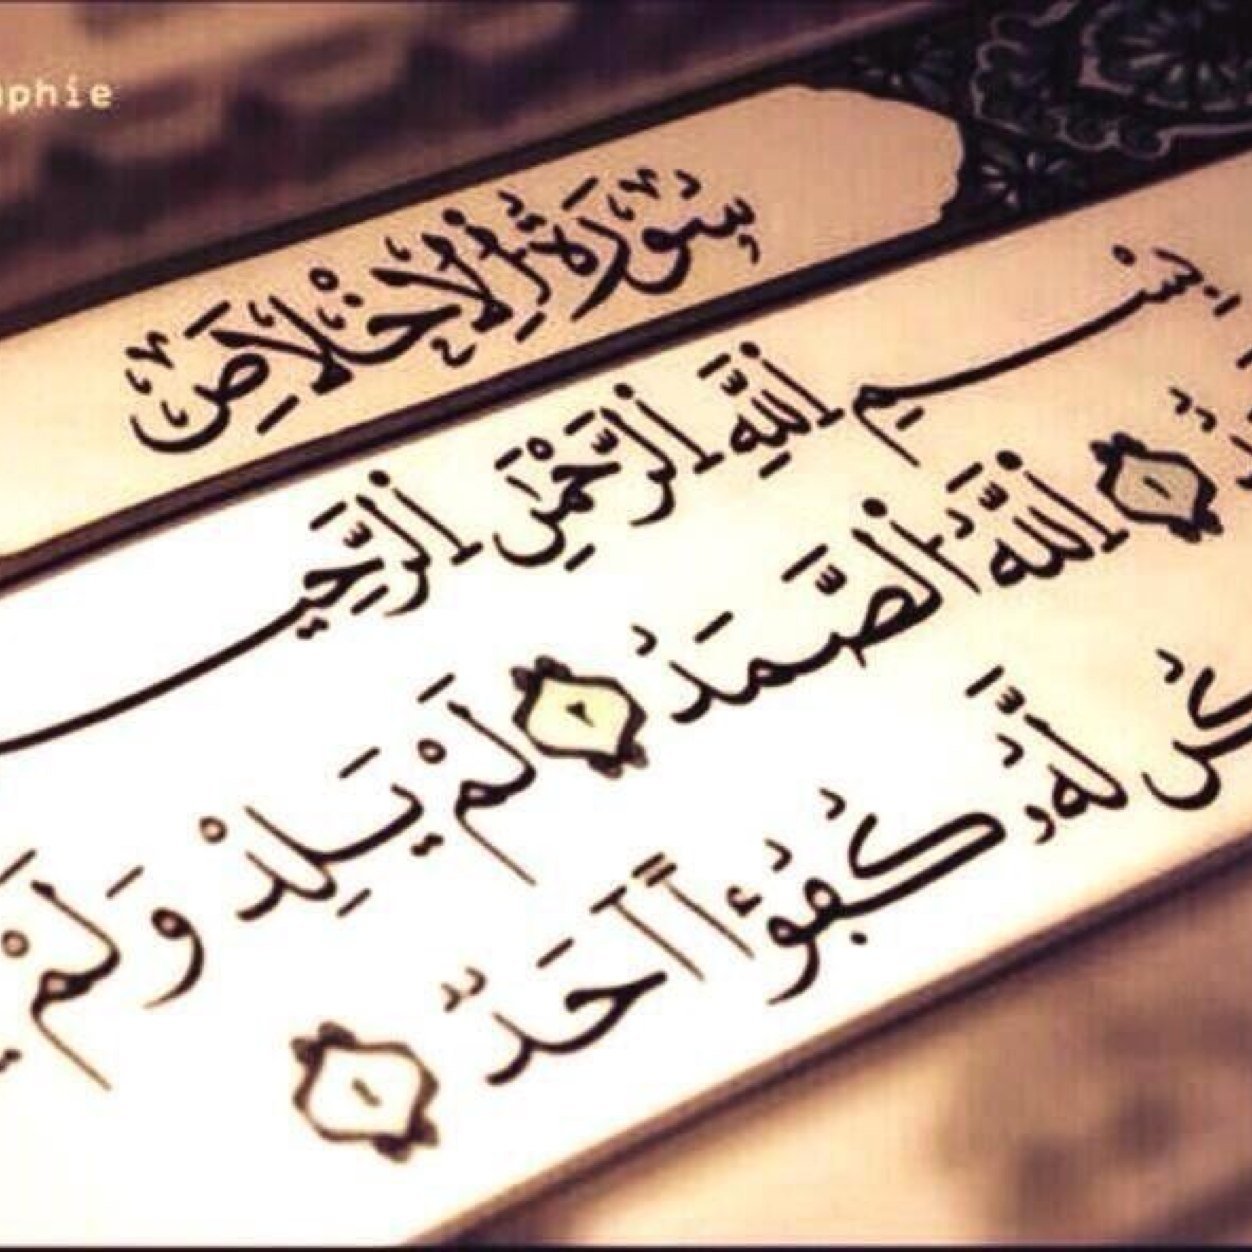 phie
سُورَةُ ٱلْإِخْلَاصِ
بِسْمِ ٱللَّهِ ٱلرَّحْمَٰنِ ٱلرَّحِي
١ ٱللَّهُ ٱلصَّمَدُ ٢ لَمْ يَلِدْ وَلَمْ
كُن لَّهُۥ كُفُؤًا أَحَدٌ